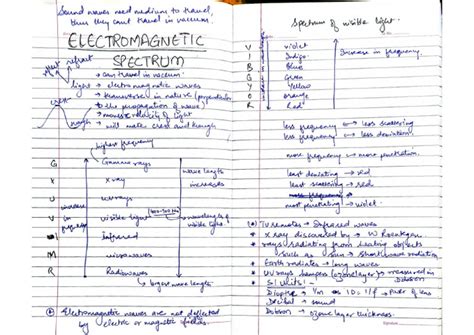 Sound waves need medium to travel,
thus they can't travel in vacuum.
ELECTROMAGNETIC
SPECTRUM
reflect refract
→ can travel in vaccum.
light → electromagnetic waves
→ transverse in nature (perpendicular
to the propagation of wave)
→ moves velocity of light
→ will make crest and trough
crest
trough
highest frequency
G Gamma rays
X X ray
U UV rays
V visible light
I infrared
M microwaves
R Radiowaves
wave length
increases
increase
in
frequency
400-700 nm
wavelength of
visible light
→ largest wave length
Electromagnetic waves are not deflected
by electric or magnetic fields.
Spectrum of visible light.
V violet
I Indigo
B Blue
G Green
Y Yellow
O orange
R Red
Increase in frequency
less frequency → less scattering
less frequency → less deviation.
more frequency → more penetration.
least deviating → red
least scattering → red
most penetrating → violet.
TV remotes → Infrared waves
X ray discovered by → W Roentgen
rays radiating from heating objects
such as sun → shortwave radiation
Earth radiates → long waves
UV rays dampers (ozone layer) → measured in
Dobson
SI Units:-
Dioptre → 1/m → 1D = 1/f → Power of lens
Decibel → sound
Dobson → ozone layer thickness.